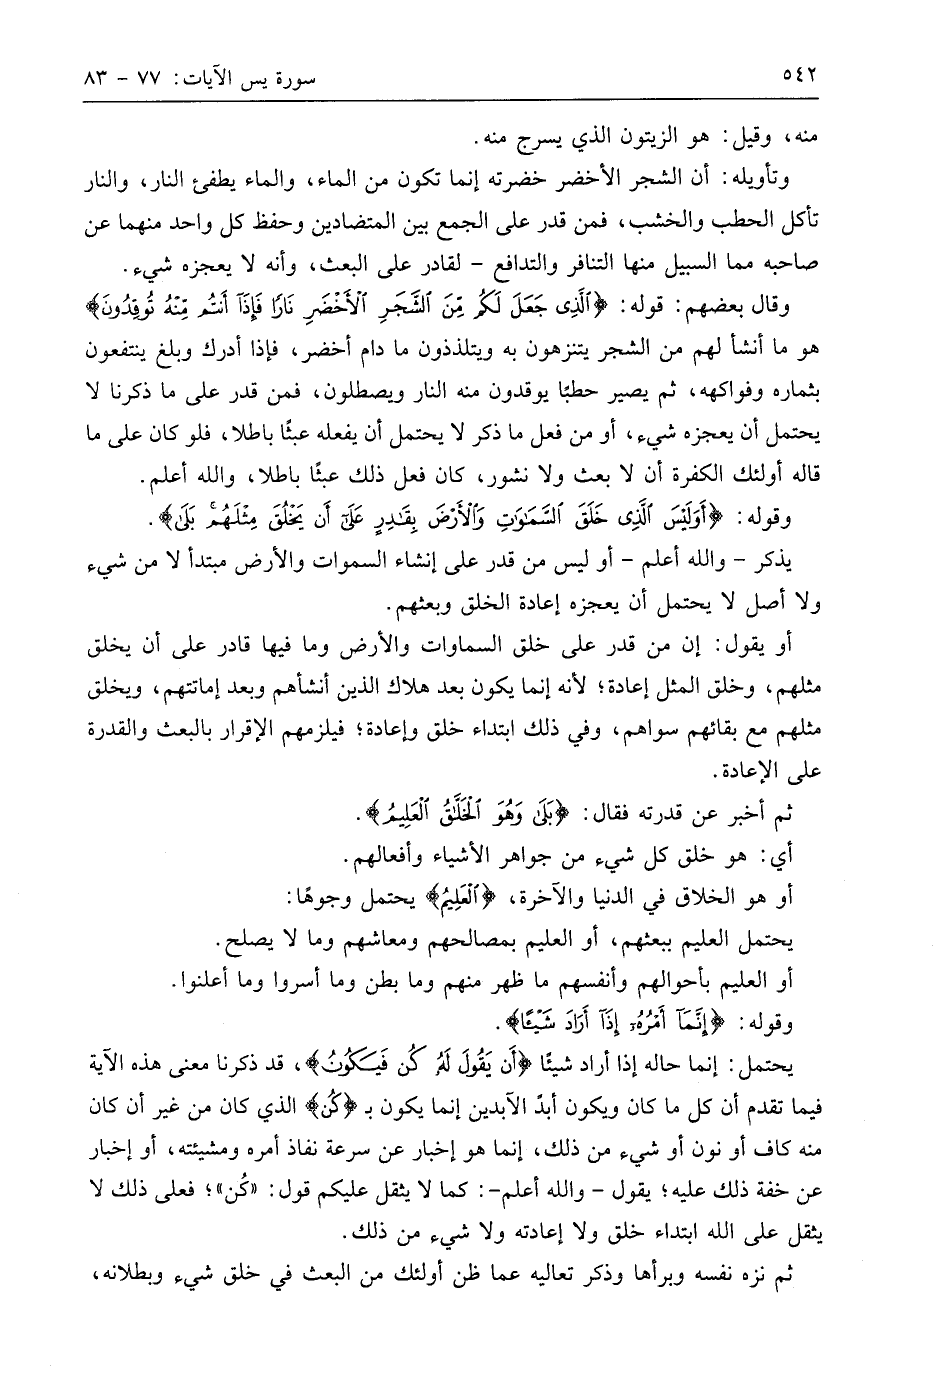 ٥٤٢ سورة يس الآيات: ٧٧ - ٨٣
منه، وقيل: هو الزيتون الذي يسرج منه.
وتأويله: أن الشجر الأخضر خضرته إنما تكون من الماء، والماء يطفئ النار، والنار
تأكل الحطب والخشب، فمن قدر على الجمع بين المتضادين وحفظ كل واحد منهما عن
صاحبه مما السبيل منها التنافر والتدافع - لقادر على البعث، وأنه لا يعجزه شيء.
وقال بعضهم: قوله: ﴿ٱلَّذِى جَعَلَ لَكُم مِّنَ ٱلشَّجَرِ ٱلْأَخْضَرِ نَارًا فَإِذَآ أَنتُم مِّنْهُ تُوقِدُونَ﴾
هو ما أنشأ لهم من الشجر يتنزهون به ويتلذذون ما دام أخضر، فإذا أدرك وبلغ ينتفعون
بثماره وفواكهه، ثم يصير حطبًا يوقدون منه النار ويصطلون، فمن قدر على ما ذكرنا لا
يحتمل أن يعجزه شيء، أو من فعل ما ذكر لا يحتمل أن يفعله عبثًا باطلا، فلو كان على ما
قاله أولئك الكفرة أن لا بعث ولا نشور، كان فعل ذلك عبثًا باطلا، والله أعلم.
وقوله: ﴿أَوَلَيْسَ ٱلَّذِى خَلَقَ ٱلسَّمَٰوَٰتِ وَٱلْأَرْضَ بِقَٰدِرٍ عَلَىٰٓ أَن يَخْلُقَ مِثْلَهُمۚ بَلَىٰ﴾.
يذكر - والله أعلم - أو ليس من قدر على إنشاء السموات والأرض مبتدأ لا من شيء
ولا أصل لا يحتمل أن يعجزه إعادة الخلق وبعثهم.
أو يقول: إن من قدر على خلق السماوات والأرض وما فيها قادر على أن يخلق
مثلهم، وخلق المثل إعادة؛ لأنه إنما يكون بعد هلاك الذين أنشأهم وبعد إماتتهم، ويخلق
مثلهم مع بقائهم سواهم، وفي ذلك ابتداء خلق وإعادة؛ فيلزمهم الإقرار بالبعث والقدرة
على الإعادة.
ثم أخبر عن قدرته فقال: ﴿بَلَىٰ وَهُوَ ٱلْخَلَّٰقُ ٱلْعَلِيمُ﴾.
أي: هو خلق كل شيء من جواهر الأشياء وأفعالهم.
أو هو الخلاق في الدنيا والآخرة، ﴿ٱلْعَلِيمُ﴾ يحتمل وجوهًا:
يحتمل العليم ببعثهم، أو العليم بمصالحهم ومعاشهم وما لا يصلح.
أو العليم بأحوالهم وأنفسهم ما ظهر منهم وما بطن وما أسروا وما أعلنوا.
وقوله: ﴿إِنَّمَآ أَمْرُهُۥٓ إِذَآ أَرَادَ شَيْـًٔا﴾.
يحتمل: إنما حاله إذا أراد شيئًا ﴿أَن يَقُولَ لَهُۥ كُن فَيَكُونُ﴾، قد ذكرنا معنى هذه الآية
فيما تقدم أن كل ما كان ويكون أبدّ الآبدين إنما يكون بـ ﴿كُن﴾ الذي كان من غير أن كان
منه كاف أو نون أو شيء من ذلك، إنما هو إخبار عن سرعة نفاذ أمره ومشيئته، أو إخبار
عن خفة ذلك عليه؛ يقول - والله أعلم-: كما لا يثقل عليكم قول: «كُن»؛ فعلى ذلك لا
يثقل على الله ابتداء خلق ولا إعادته ولا شيء من ذلك.
ثم نزه نفسه وبرأها وذكر تعاليه عما ظن أولئك من البعث في خلق شيء وبطلانه،